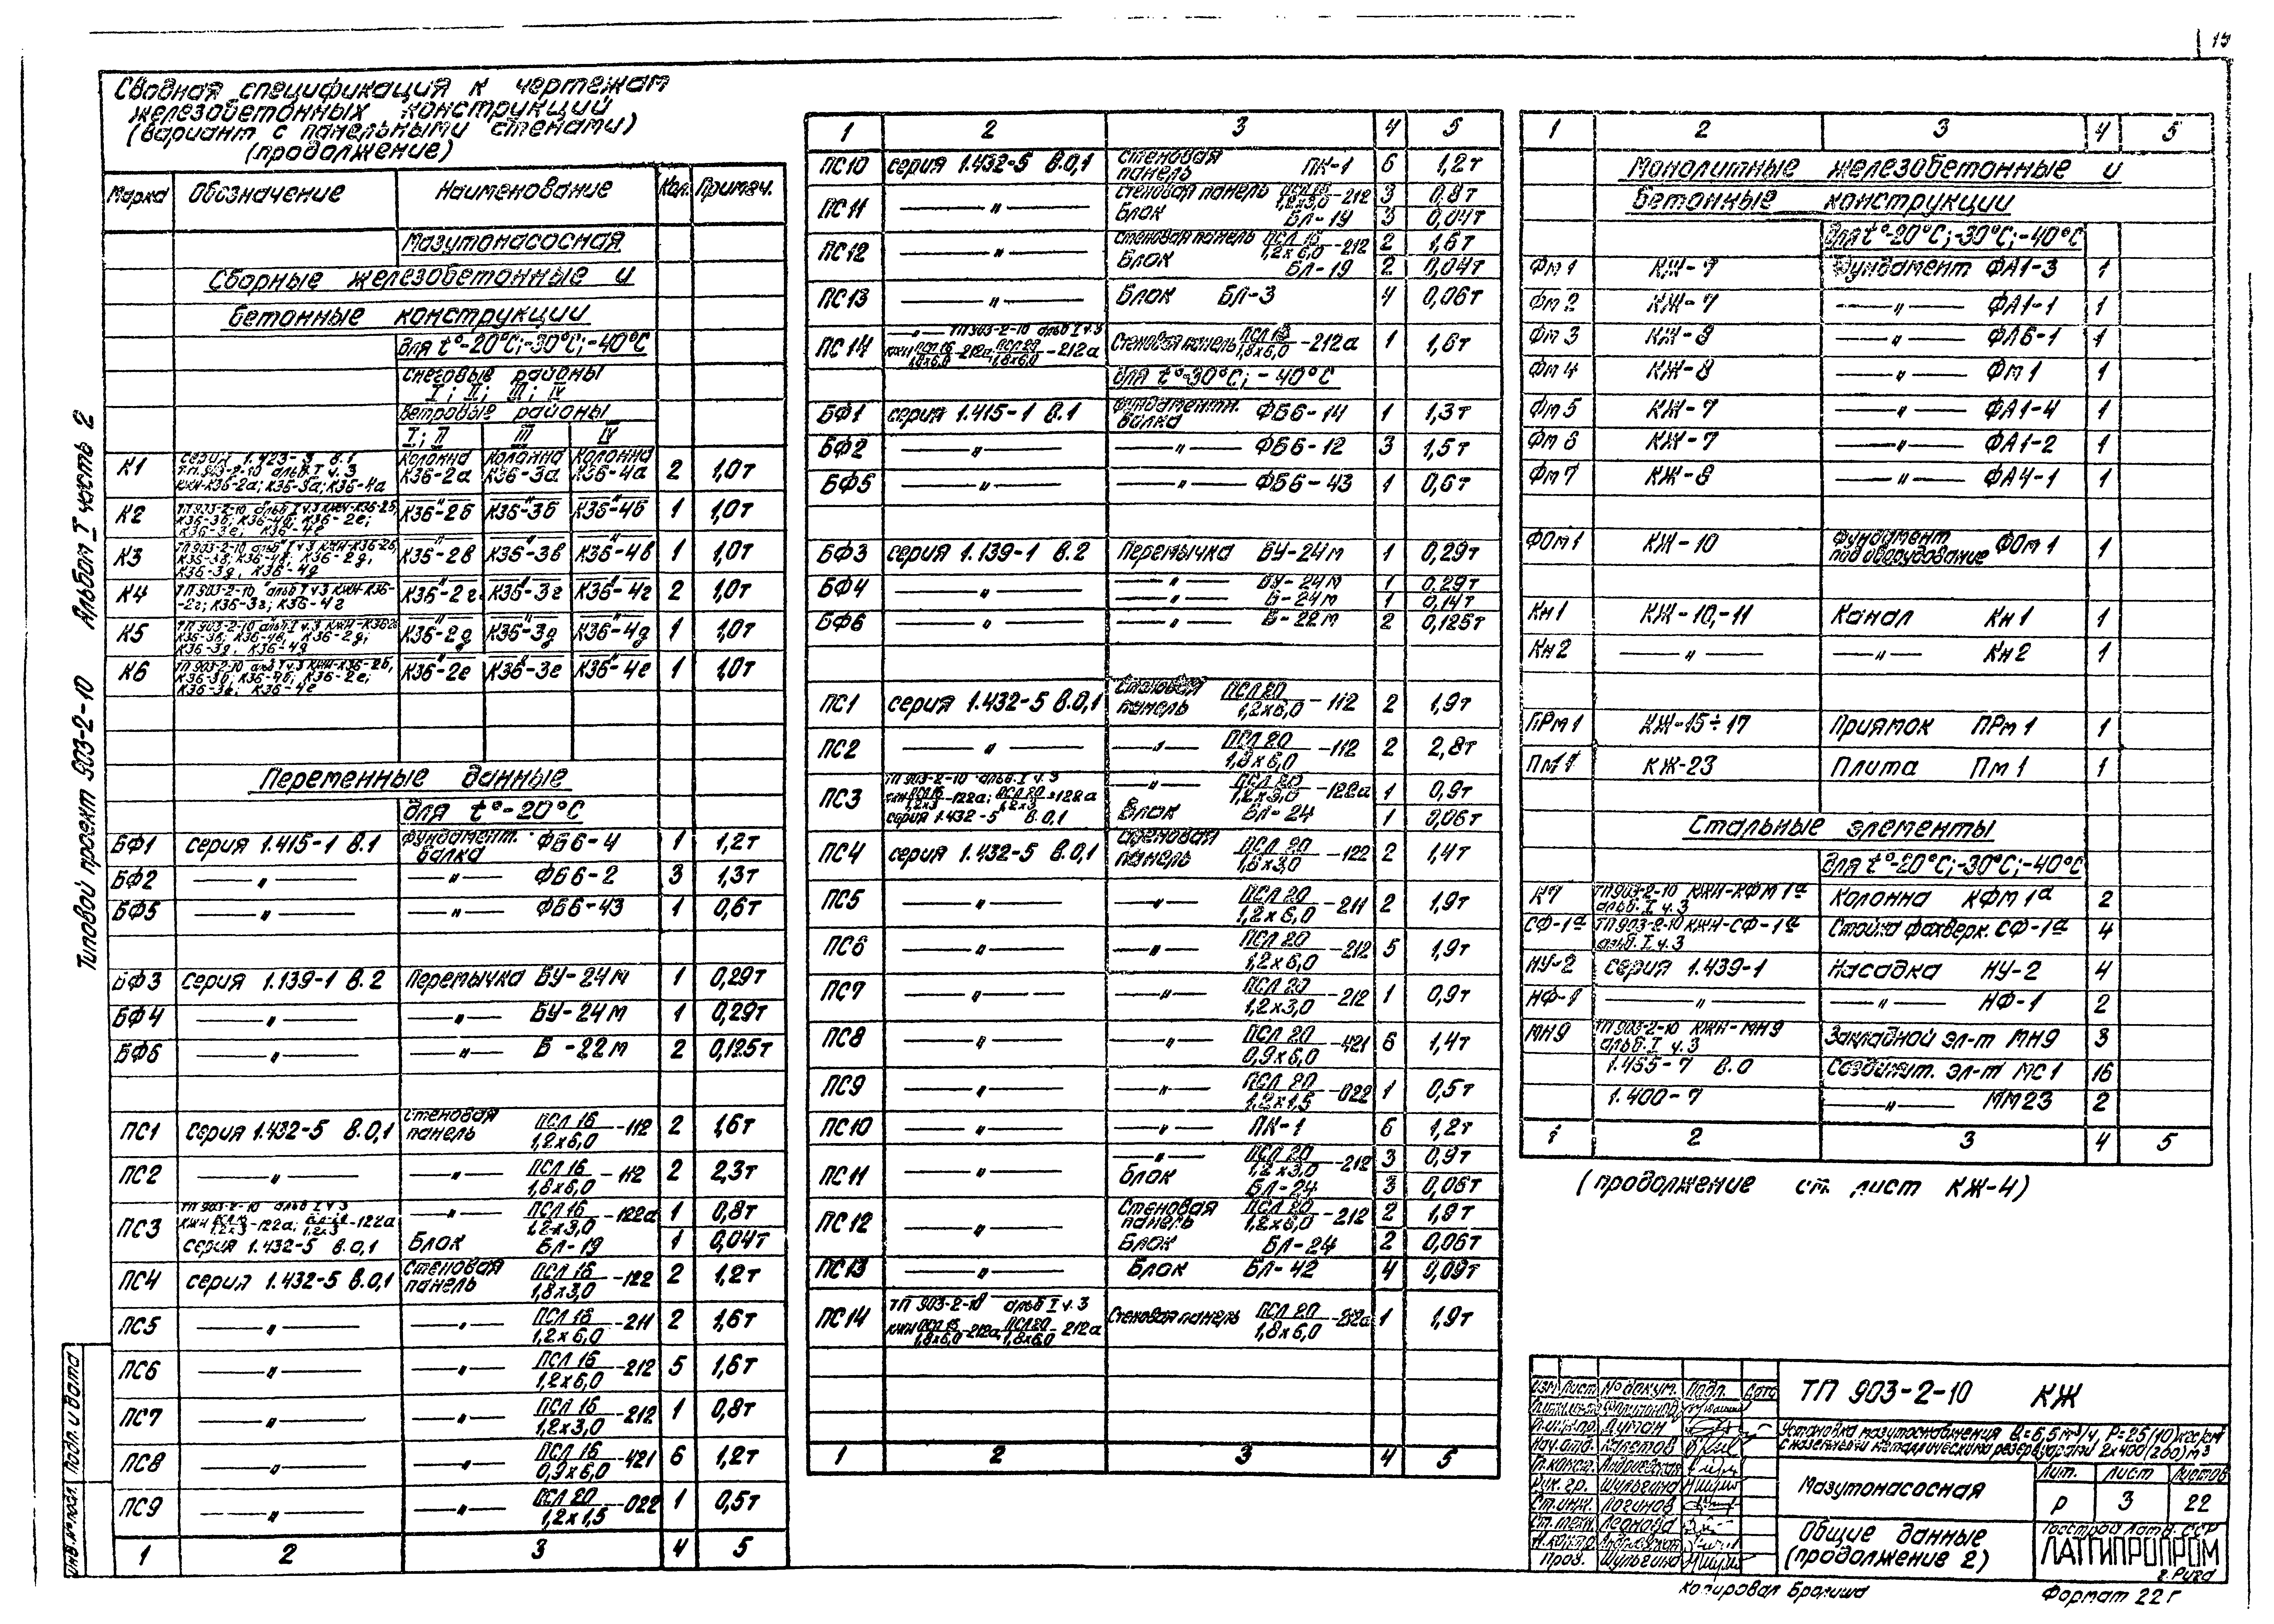 15
Сводная спецификация к чертежам
железобетонных конструкций
(вариант с панельными стенами)
(продолжение)
Марка Обозначение Наименование Кол. Примеч.
Мазутонасосная
Сборные железобетонные и
бетонные конструкции
для t°-20°С;-30°С;-40°С
снеговые районы
I; II; III; IV
ветровые районы
I; II III IV
К1 серия 1.423-3 в.1 ТП 903-2-10 альб I ч.3 КЖИ-К36-2а; К36-3а; К36-4а Колонна К36-2а Колонна К36-3а Колонна К36-4а 2 1,0т
К2 К36-2б К36-3б К36-4б 1 1,0т
К3 К36-2в К36-3в К36-4в 1 1,0т
К4 ТП 903-2-10 альб I ч.3 КЖИ-К36-2г; К36-3г; К36-4г К36-2г К36-3г К36-4г 2 1,0т
К5 К36-2д К36-3д К36-4д 1 1,0т
К6 К36-2е К36-3е К36-4е 1 1,0т
Переменные данные
для t°-20°С
БФ1 серия 1.415-1 в.1 Фундамент. балка ФБ6-4 1 1,2т
БФ2 —"— —"— ФБ6-2 3 1,3т
БФ5 —"— —"— ФБ6-43 1 0,6т
БФ3 серия 1.139-1 в.2 Перемычка БУ-24м 1 0,29т
БФ4 —"— —"— БУ-24м 1 0,29т
БФ6 —"— —"— Б-22м 2 0,125т
ПС1 серия 1.432-5 в.0,1 Стеновая панель ПСЛ 16/1,2х6,0-112 2 1,6т
ПС2 —"— —"— ПСЛ 16/1,8х6,0-112 2 2,3т
ПС3 ТП 903-2-10 альб I ч.3 —"— ПСЛ 16/1,2х3,0-122а 1 0,8т
серия 1.432-5 в.0,1 Блок БЛ-19 1 0,04т
ПС4 серия 1.432-5 в.0,1 Стеновая панель ПСЛ 16/1,8х3,0-122 2 1,2т
ПС5 —"— —"— ПСЛ 16/1,2х6,0-211 2 1,6т
ПС6 —"— —"— ПСЛ 16/1,2х6,0-212 5 1,6т
ПС7 —"— —"— ПСЛ 16/1,2х3,0-212 1 0,8т
ПС8 —"— —"— ПСЛ 16/0,9х6,0-421 6 1,2т
ПС9 —"— —"— ПСЛ 20/1,2х1,5-022 1 0,5т
1 2 3 4 5
1 2 3 4 5
ПС10 серия 1.432-5 в.0,1 Стеновая панель ПК-1 6 1,2т
ПС11 —"— Стеновая панель ПСЛ 16/1,2х3,0-212 3 0,8т
Блок БЛ-19 3 0,04т
ПС12 —"— Стеновая панель ПСЛ 16/1,2х6,0-212 2 1,6т
Блок БЛ-19 2 0,04т
ПС13 —"— Блок БЛ-3 4 0,06т
ПС14 —"— ТП 903-2-10 альб I ч.3 КЖИ ПСЛ 16/1,8х6,0-212а; ПСЛ 20/1,8х6,0-212а Стеновая панель ПСЛ 16/1,8х6,0-212а 1 1,6т
для t°-30°С; -40°С
БФ1 серия 1.415-1 в.1 Фундаментн. балка ФБ6-14 1 1,3т
БФ2 —"— —"— ФБ6-12 3 1,5т
БФ5 —"— —"— ФБ6-43 1 0,6т
БФ3 серия 1.139-1 в.2 Перемычка БУ-24м 1 0,29т
БФ4 —"— —"— БУ-24м 1 0,29т
—"— Б-24м 1 0,14т
БФ6 —"— —"— Б-22м 2 0,125т
ПС1 серия 1.432-5 в.0,1 Стеновая панель ПСЛ 20/1,2х6,0-112 2 1,9т
ПС2 —"— —"— ПСЛ 20/1,8х6,0-112 2 2,8т
ПС3 ТП 903-2-10 альб. I ч.3 КЖИ ПСЛ 16/1,2х3-122а; ПСЛ 20/1,2х3-122а —"— ПСЛ 20/1,2х3,0-122а 1 0,9т
серия 1.432-5 в.0,1 Блок БЛ-24 1 0,06т
ПС4 серия 1.432-5 в.0,1 Стеновая панель ПСЛ 20/1,8х3,0-122 2 1,4т
ПС5 —"— —"— ПСЛ 20/1,2х6,0-211 2 1,9т
ПС6 —"— —"— ПСЛ 20/1,2х6,0-212 5 1,9т
ПС7 —"— —"— ПСЛ 20/1,2х3,0-212 1 0,9т
ПС8 —"— —"— ПСЛ 20/0,9х6,0-421 6 1,4т
ПС9 —"— —"— ПСЛ 20/1,2х1,5-022 1 0,5т
ПС10 —"— —"— ПК-1 6 1,2т
ПС11 —"— —"— ПСЛ 20/1,2х3,0-212 3 0,9т
Блок БЛ-24 3 0,06т
ПС12 —"— Стеновая панель ПСЛ 20/1,2х6,0-212 2 1,9т
Блок БЛ-24 2 0,06т
ПС13 —"— Блок БЛ-42 4 0,09т
ПС14 ТП 903-2-10 альб I ч.3 КЖИ ПСЛ 16/1,8х6,0-212а; ПСЛ 20/1,8х6,0-212а Стеновая панель ПСЛ 20/1,8х6,0-212а 1 1,9т
1 2 3 4 5
1 2 3 4 5
Монолитные железобетонные и
бетонные конструкции
для t°-20°С;-30°С;-40°С
Фм1 КЖ-7 Фундамент ФА1-3 1
Фм2 КЖ-7 —"— ФА1-1 1
Фм3 КЖ-8 —"— ФА6-1 1
Фм4 КЖ-8 —"— Фм1 1
Фм5 КЖ-7 —"— ФА1-4 1
Фм6 КЖ-7 —"— ФА1-2 1
Фм7 КЖ-8 —"— ФА4-1 1
ФОм1 КЖ-10 Фундамент под оборудование ФОм1 1
Кн1 КЖ-10,-11 Канал Кн1 1
Кн2 —"— —"— Кн2 1
ПРм1 КЖ-15÷17 Приямок ПРм1 1
Пм1 КЖ-23 Плита Пм1 1
Стальные элементы
для t°-20°С;-30°С;-40°С
К7 ТП 903-2-10 КЖИ-КФМ1а альб. I ч.3 Колонна КФМ1а 2
СФ-1а ТП 903-2-10 КЖИ-СФ-1а альб. I ч.3 Стойка фахверк. СФ-1а 4
НУ-2 серия 1.439-1 Насадка НУ-2 4
НФ-1 —"— —"— НФ-1 2
МН9 ТП 903-2-10 КЖИ-МН9 альб. I ч.3 Закладной эл-т МН9 3
1.455-7 в.0 Соединит. эл-т МС1 16
1.400-7 —"— ММ23 2
1 2 3 4 5
(продолжение см. лист КЖ-4)
Типовой проект 903-2-10 Альбом I часть 2
Инв.№подл. Подп. и дата
Изм Лист №докум. Подп. Дата
ТП 903-2-10 КЖ
Установка мазутоснабжения Q=6,5м³/ч, Р=25(10)кгс/см²
с наземными металлическими резервуарами 2х400(200)м³
Мазутонасосная
Лит. Лист Листов
Р 3 22
Общие данные
(продолжение 2)
Госстрой Латв. ССР
ЛАТГИПРОПРОМ
г. Рига
Гл.инж.пр.
Нач.отд.
Гл.констр.
Рук. гр. Шульгина
Ст.инж. Логинов
Ст.техн. Леонова
Н.контр.
Пров. Шульгина
Копировал
Формат 22г